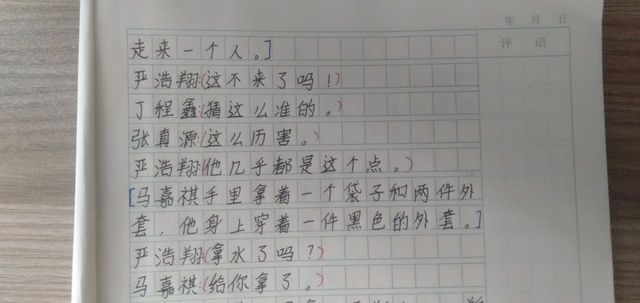 年 月 日
评 语
走来一个人。]
严浩翔:(这不来了吗!)
丁程鑫:(猜这么准的。)
张真源:(这么厉害。)
严浩翔:(他几乎都是这个点。)
[马嘉祺手里拿着一个袋子和两件外
套,他身上穿着一件黑色的外套。]
严浩翔:(拿水了吗?)
马嘉祺:(给你拿了。)